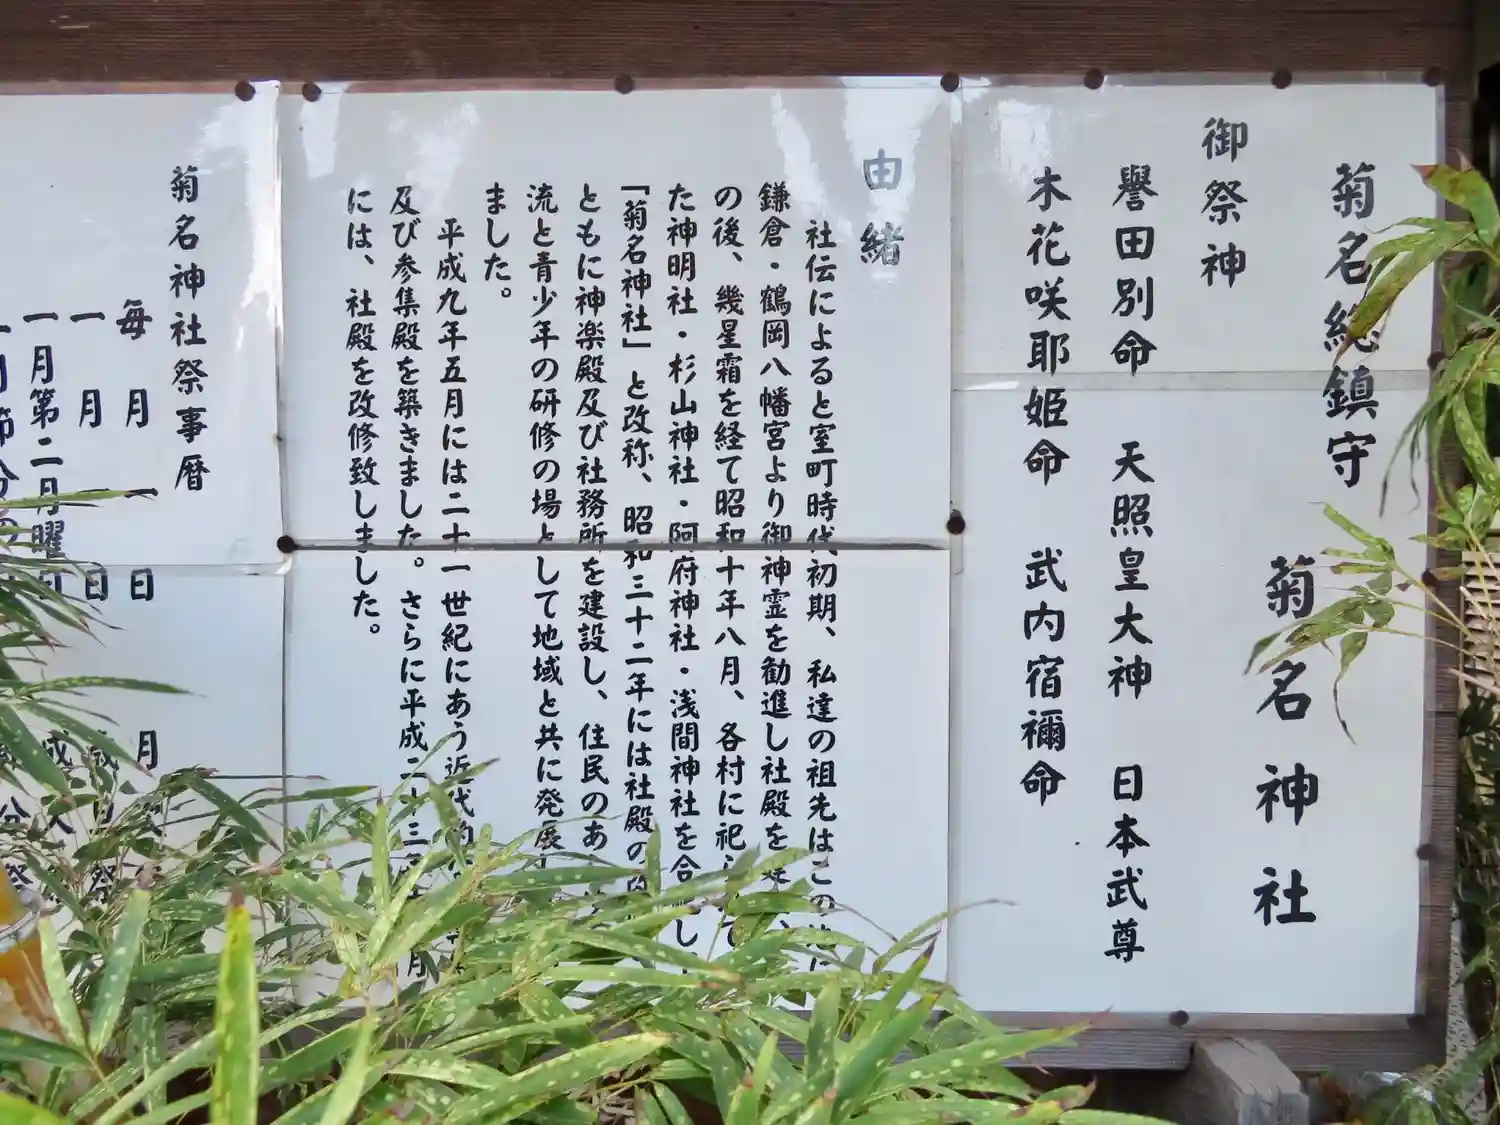 菊名総鎮守
菊名神社
御祭神
誉田別命　天照皇大神　日本武尊
木花咲耶姫命　武内宿禰命
由緒
社伝によると室町時代初期、私達の祖先はこの地に
鎌倉・鶴岡八幡宮より御神霊を勧進し社殿を建
の後、幾星霜を経て昭和十年八月、各村に祀られて
た神明社・杉山神社・阿府神社・浅間神社を合 し
「菊名神社」と改称、昭和三十二年には社殿の
ともに神楽殿及び社務所を建設し、住民のあ
流と青少年の研修の場として地域と共に発展し
ました。
平成九年五月には二十一世紀にあう近代的
及び参集殿を築きました。さらに平成二十三年 月
には、社殿を改修致しました。
菊名神社祭事暦
毎月一日　月
一月一日　歳旦祭
一月第二月曜日　成人